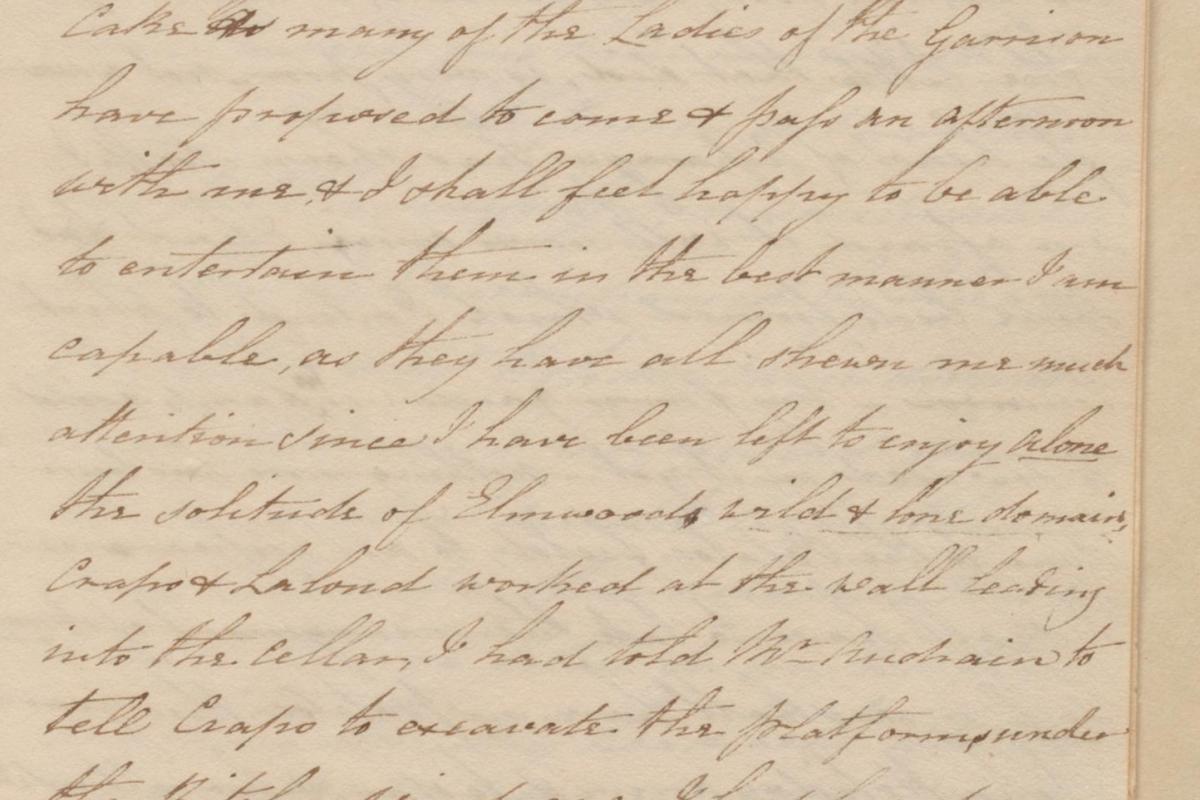 Cake as many of the Ladies of the Garrison
have proposed to come & pass an afternoon
with me, & I shall feel happy to be able
to entertain them in the best manner I am
capable, as they have all shewn me much
attention since I have been left to enjoy alone
the solitude of Elmwoods wild & lone domain,
Crapo & Lalond worked at the wall leading
into the Cellar, I had told Mr Audrain to
tell Crapo to excavate the platform, under
the Kitchen